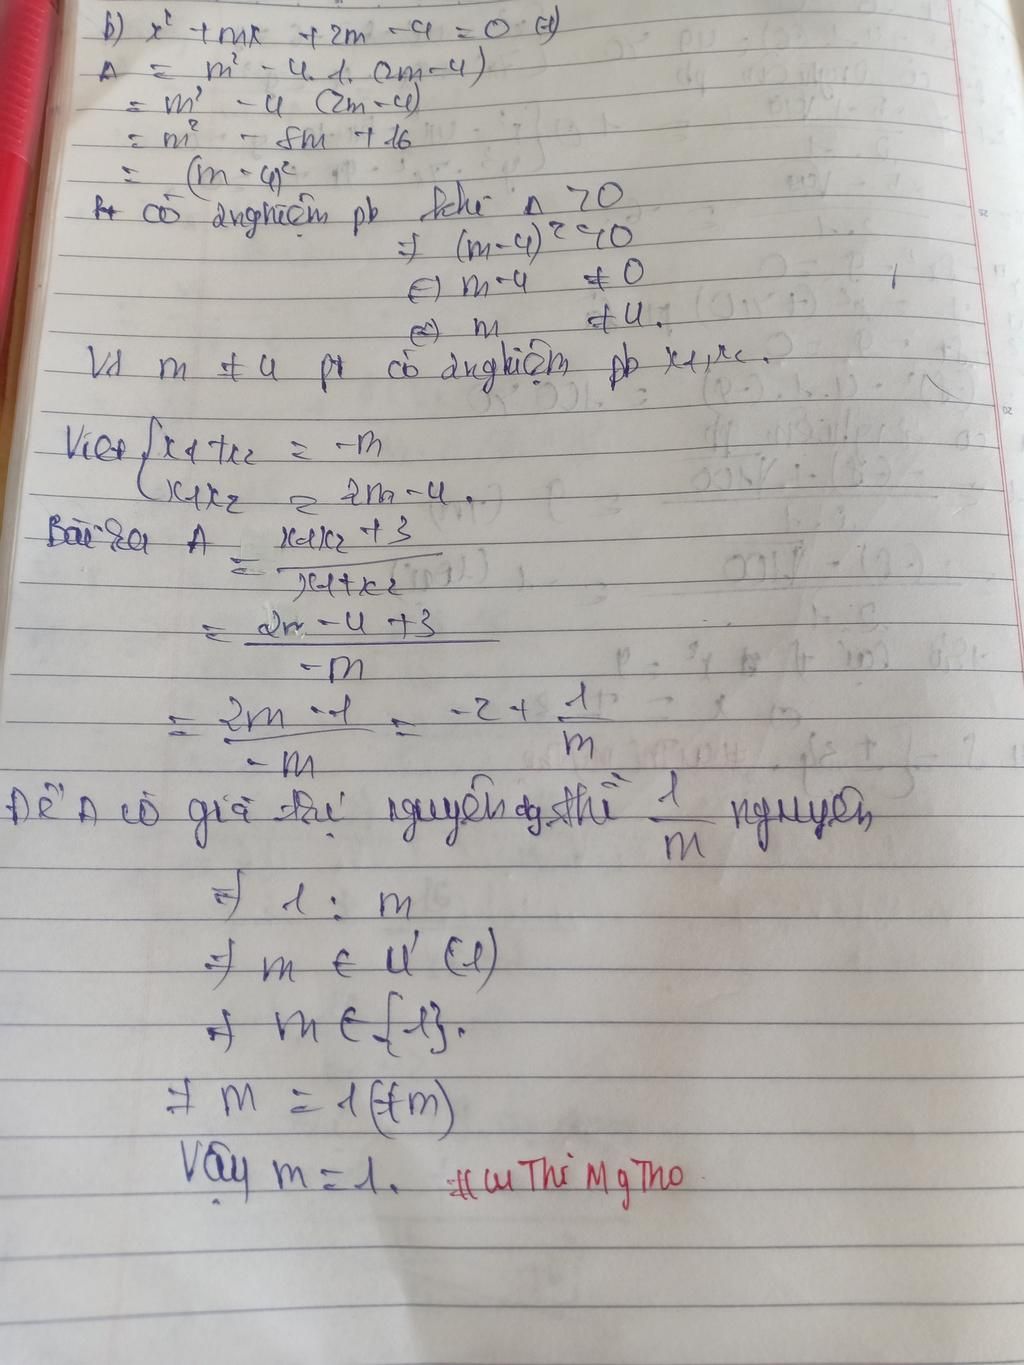 b) x² + mx + 2m - 4 = 0 (1)
Δ = m² - 4.1.(2m-4)
= m² - 4 (2m-4)
= m² - 8m + 16
= (m-4)²
Pt có 2 nghiệm pb khi Δ > 0
=> (m-4)² > 0
<=> m-4 ≠ 0
<=> m ≠ 4.
Vd m ≠ 4 pt có 2 nghiệm pb x1, x2.
Viet { x1+x2 = -m
x1x2 = 2m-4.
Bài ra A = x1x2 + 3 / x1+x2
= 2m - 4 + 3 / -m
= 2m - 1 / -m = -2 + 1/m
Để A có giá trị nguyên dg thì 1/m nguyên
=> 1 : m
=> m ∈ Ư (1)
=> m ∈ {1}.
=> m = 1 (tm)
Vậy m = 1. #CuThiMgTho